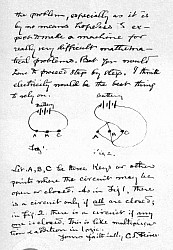 the problem, especially as it is
by no means hopeless to ex-
pect to make a machine for
really very difficult mathemat-
ical problems. But you would
have to proceed step by step. I think
electricity would be the best thing
to rely on.
Battery
Battery
A B C
A B C
Fig 1.
Fig 2.
Let A, B, C be three keys or other
points where the circuit may be
open or closed. As in Fig 1, there
is a circuit only if all are closed;
in Fig. 2. there is a circuit if any
one is closed. This is like multiplica-
tion & addition in Logic.
Yours faithfully, C.S. Peirce